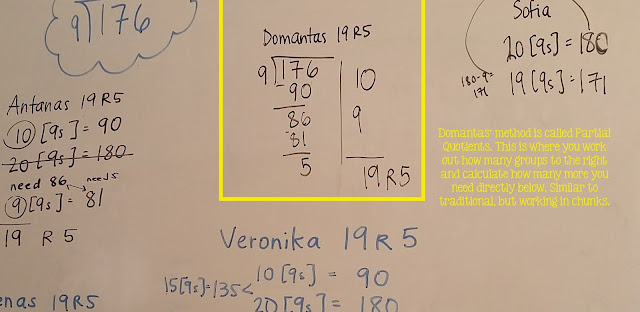 9)176
Antanas 19 R5
10 [9s] = 90
20 [9s] = 180
need 86 needs
9 [9s] = 81
19 R 5
enas 19R5
Domantas 19 R5
9)176
-90
86
-81
5
10
9
19 R 5
Sofia
20 [9s] = 180
180-9=
171
19 [9s] = 171
Domantas' method is called Partial
Quotients. This is where you work
out how many groups to the right
and calculate how many more you
need directly below. Similar to
traditional, but working in chunks.
Veronika 19 R 5
15[9s]=135<
10 [9s] = 90
20 [9s] = 180